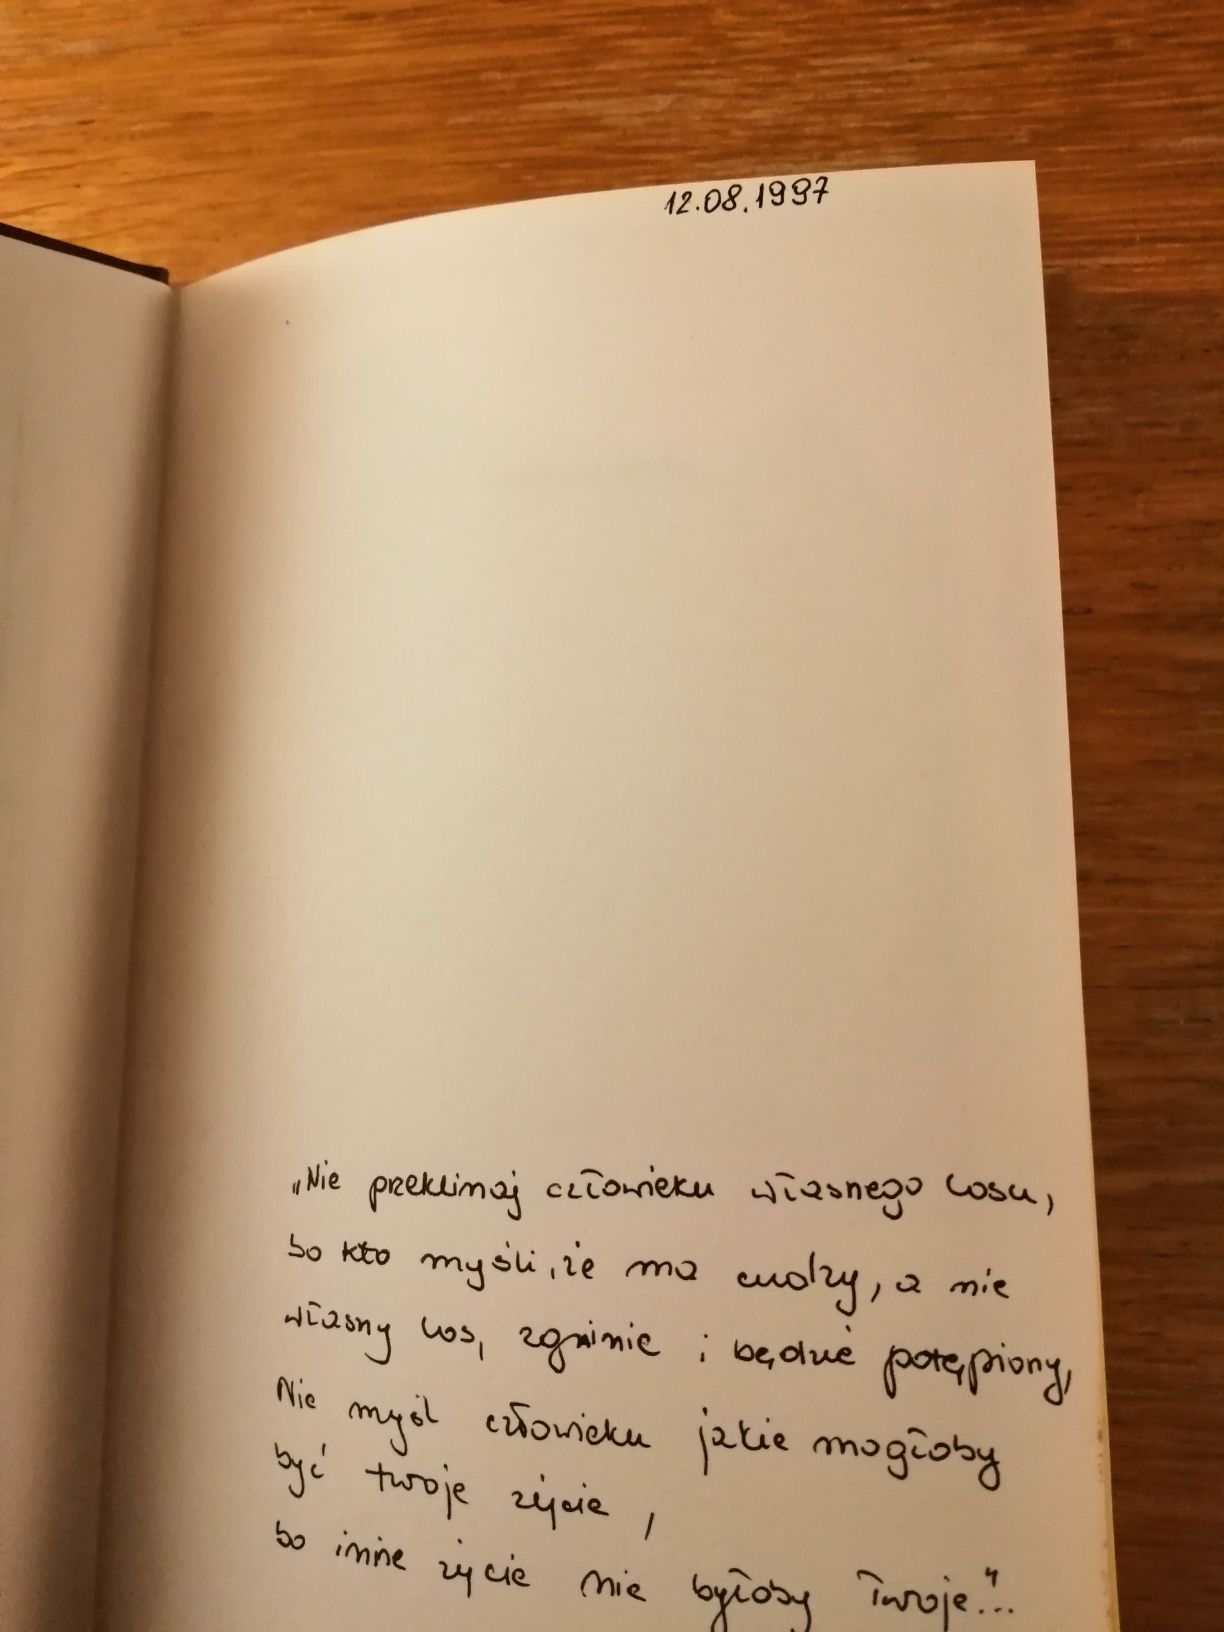 12.08.1997
„Nie przeklinaj człowieku własnego losu,
bo kto myśli, że ma cudzy, a nie
własny los, zginie i będzie potępiony,
Nie myśl człowieku jakie mogłoby
być twoje życie,
bo inne życie nie byłoby Twoje."...